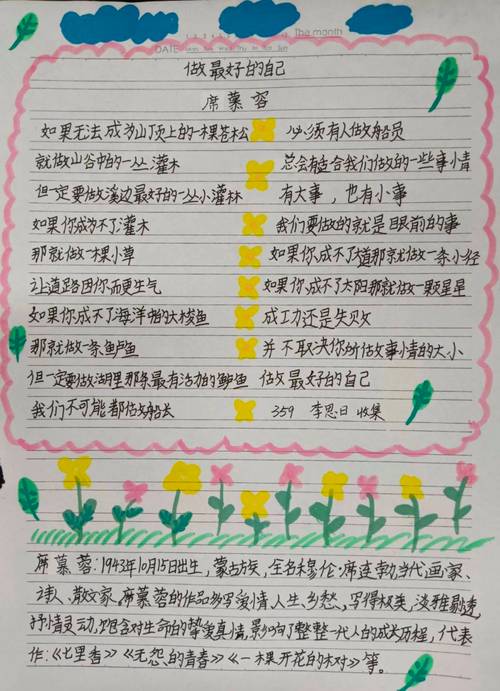 The month
DATE
做最好的自己
席慕蓉
如果无法成为山顶上的一棵苍松
就做山谷中的一丛灌木
但一定要做溪边最好的一丛小灌林
如果你成为不了灌木
那就做一棵小草
让道路因你而更生气
如果你成不了海洋中的大梭鱼
那就做一条鲈鱼
但一定要做湖里那条最有活力的鲈鱼
我们不可能都做船长
必须有人做船员
总会有适合我们做的一些事情
有大事，也有小事
我们要做的就是眼前的事
如果你成不了大道那就做一条小径
如果你成不了太阳那就做一颗星星
成功还是失败
并不取决你所做事情的大小
做最好的自己
359 李思日 收集
席慕蓉:1943年10月15日出生，蒙古族，全名穆伦·席连勃,当代画家、
诗人、散文家。席慕蓉的作品多写爱情、人生、乡愁，写得极美，淡雅剔透，
抒情灵动，饱含对生命的挚爱真情，影响了整整一代人的成长历程，代表
作:《七里香》《无怨的青春》《一棵开花的树》等。